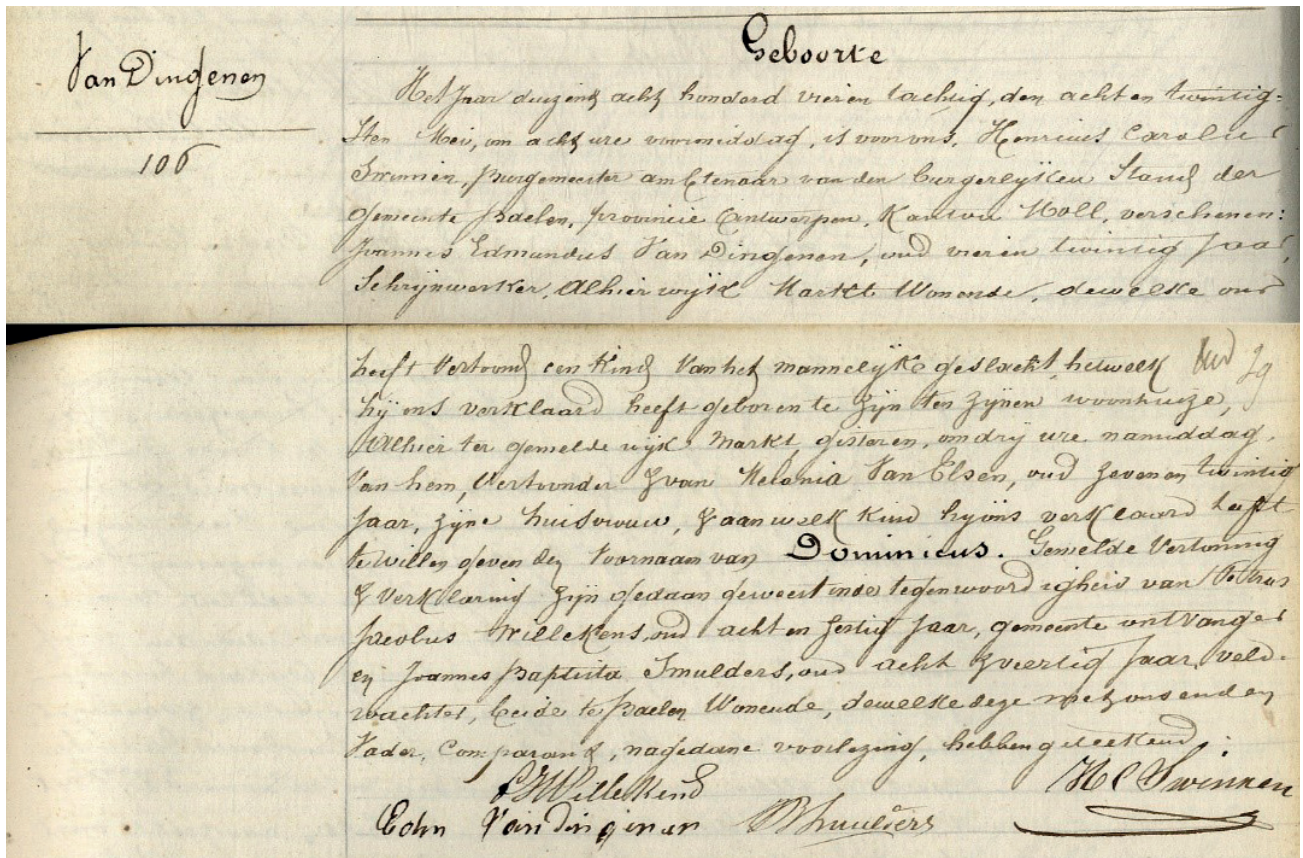 Van Dingenen
106
Geboorte
Het Jaar duizend acht honderd vier en tachtig, den acht en twintig-
sten Mei, om acht ure voormiddag, is voor ons, Henricus Carolus
Swinnen, Burgemeester ambtenaar van den burgerlyken Stand der
gemeente Baelen, provincie Antwerpen, Kanton Moll, verschenen:
Joannes Edmundus Van Dingenen, oud vier en twintig Jaar,
Schrynwerker, Alhier wyk Markt Wonende, dewelke ons
heeft Vertoond een Kind Van het mannelyk geslacht, hetwelk
hy ons verklaard heeft geboren te zyn ten zynen woonhuize,
Alhier ter gemelde wyk Markt, gisteren, om dry ure namiddag,
Van hem, Vertoonder & van Melania Van Elsen, oud zeven en twintig
Jaar, zyne huisvrouw, & aan welk kind hy ons verklaard heeft
te willen geven den Voornaam van Dominicus. Gemelde Vertooning
& Verklaring zyn gedaan geweest in de tegenwoordigheid van Petrus
Jacobus Willekens, oud acht en zestig Jaar, gemeente ontvanger
en Joannes Baptista Smulders, oud acht & veertig Jaar, veld-
wachter, beide te Baelen Wonende, dewelke deze met ons en den
Vader, Comparant, na gedane voorlezing, hebben geteekend:
PJ Willekens
H C Swinnen
Edm Van dingenen
JB Smulders